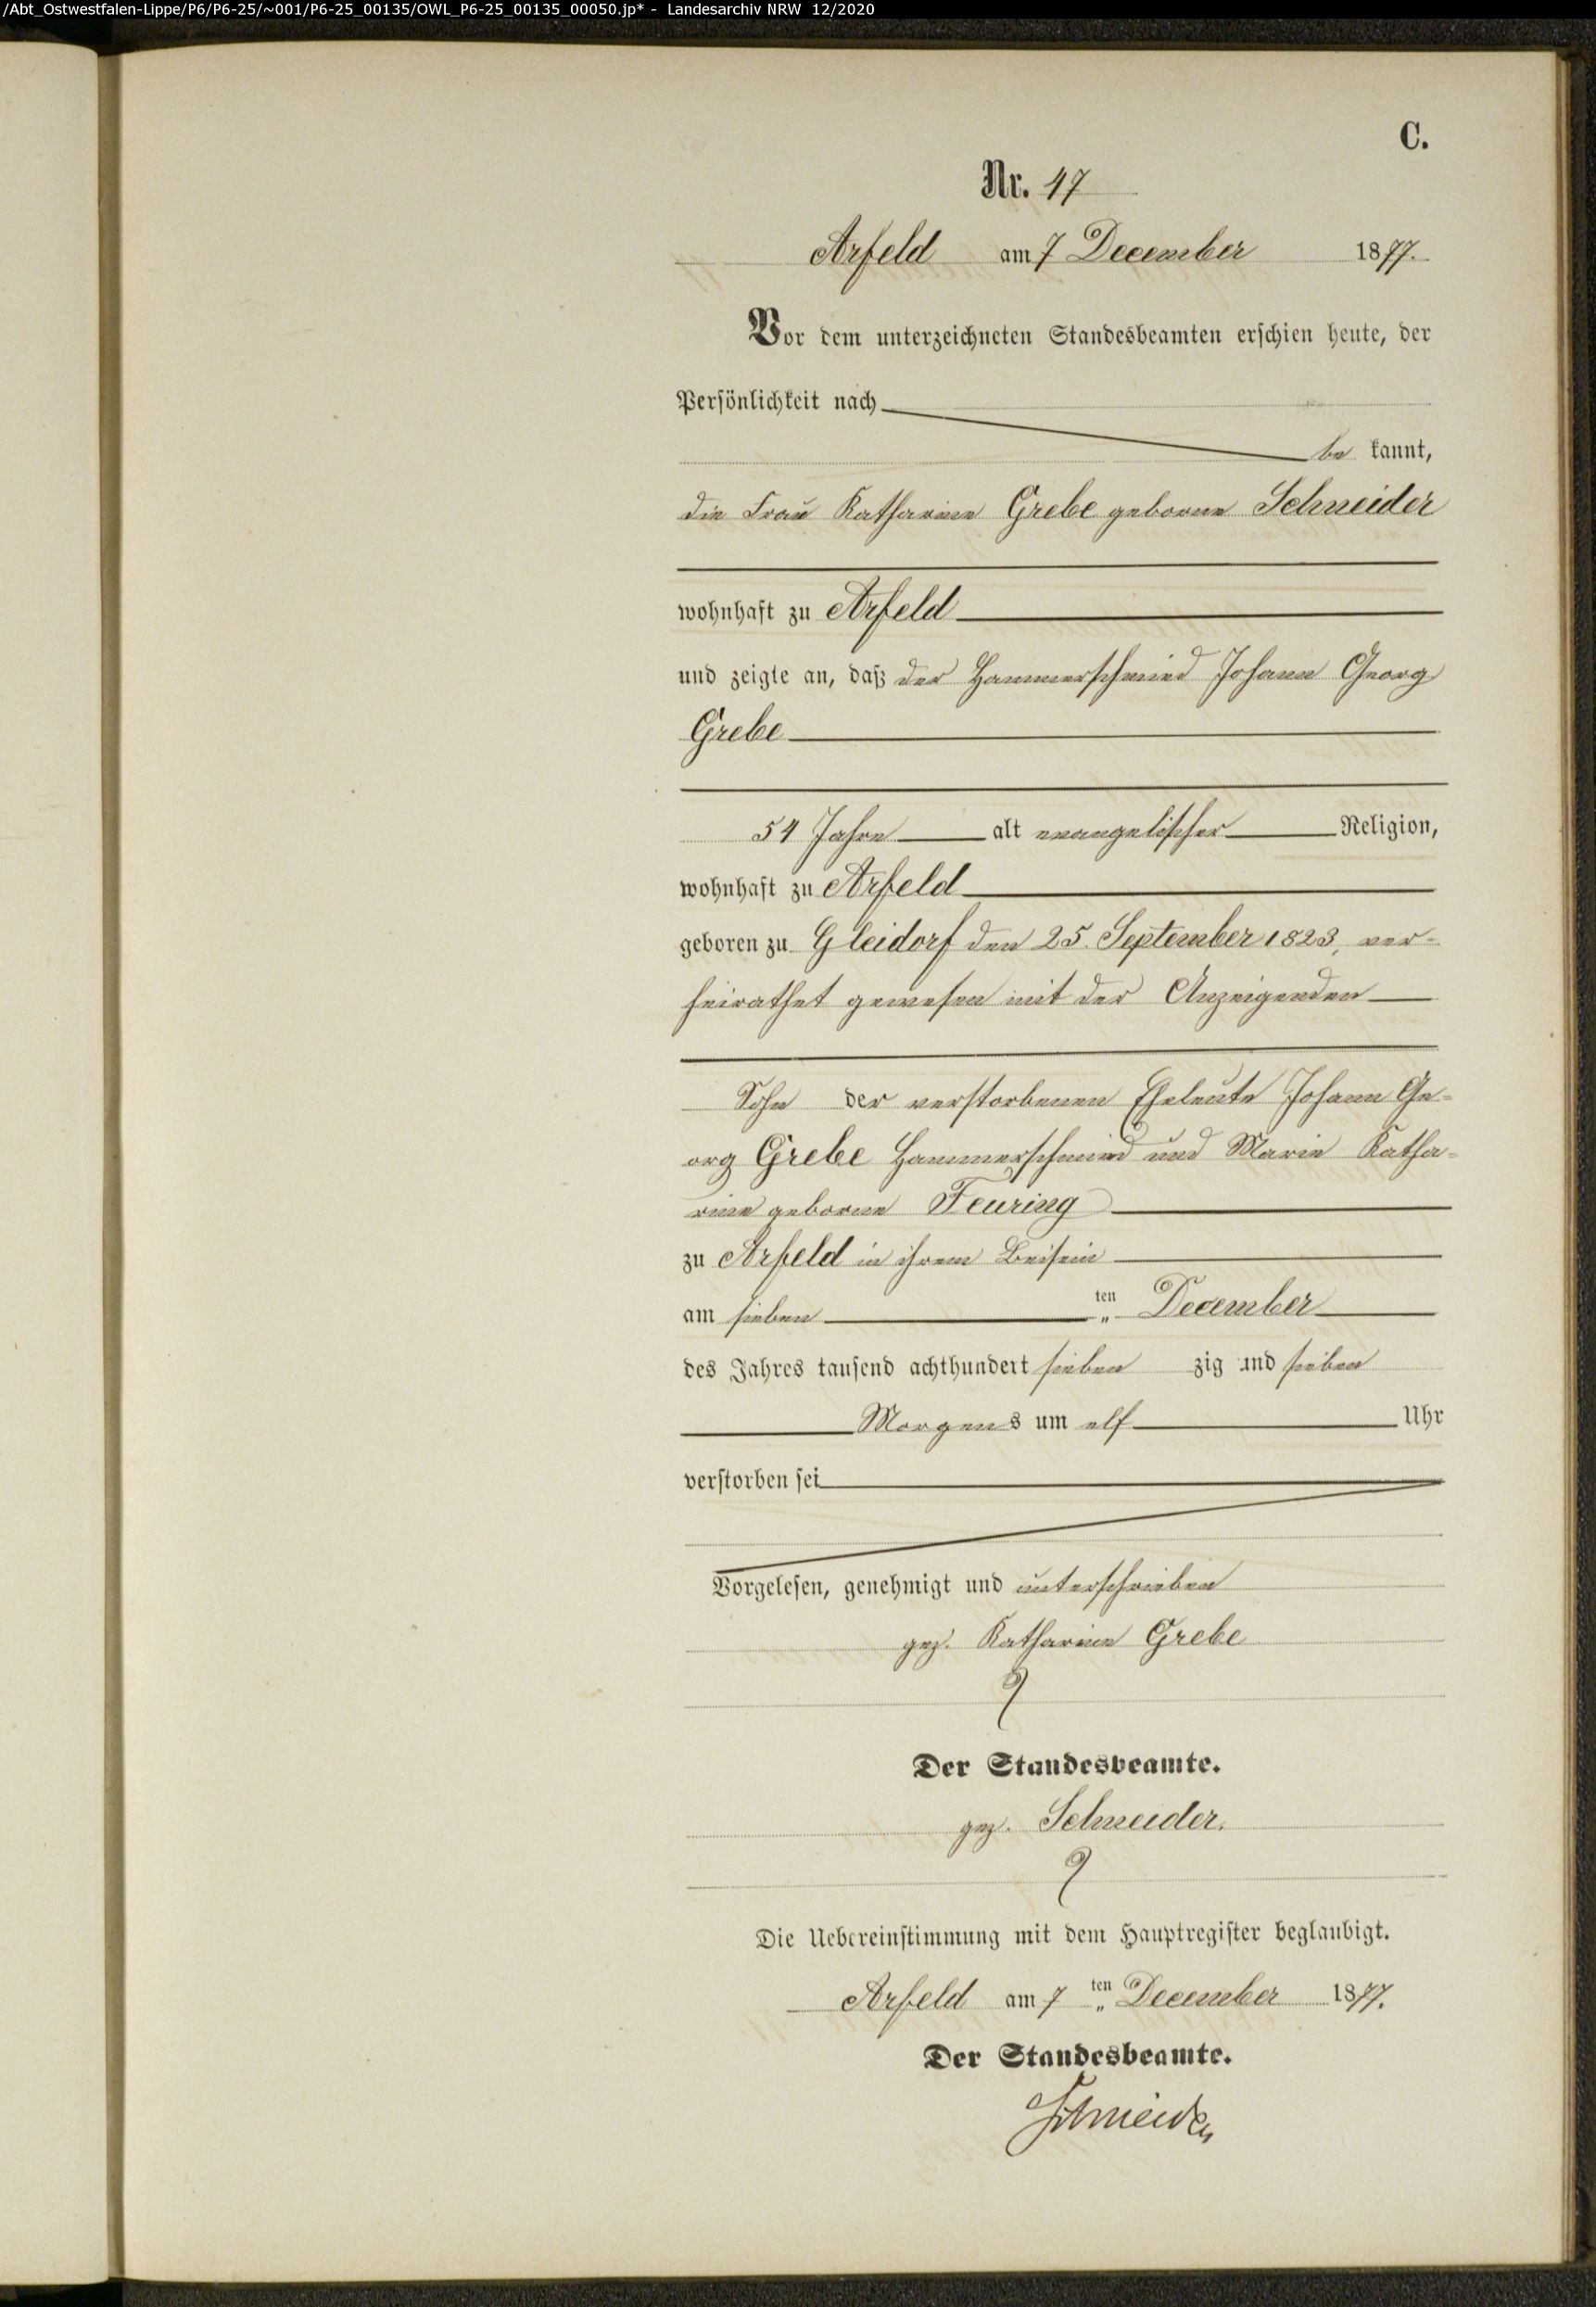 /Abt_Ostwestfalen-Lippe/P6/P6-25/~001/P6-25_00135/OWL_P6-25_00135_00050.jp* - Landesarchiv NRW 12/2020
C.
Nr. 47
Arfeld am 7 December 1877.
Vor dem unterzeichneten Standesbeamten erschien heute, der
Persönlichkeit nach
be kannt,
die Frau Katharine Grebe geborne Schneider
wohnhaft zu Arfeld
und zeigte an, daß der Hammerschmied Johann Georg
Grebe
54 Jahre alt evangelischer Religion,
wohnhaft zu Arfeld
geboren zu Gleidorf den 25. September 1823, ver-
heirathet gewesen mit der Anzeigenden
Sohn der verstorbenen Eheleute Johann Ge-
org Grebe Hammerschmied und Marie Katha-
rine geborne Feuring
zu Arfeld in ihrem Beisein
am sieben ten December
des Jahres tausend achthundert sieben zig und sieben
Morgens um elf Uhr
verstorben sei
Vorgelesen, genehmigt und unterschrieben
gez. Katharine Grebe
Der Standesbeamte.
gez. Schneider.
Die Uebereinstimmung mit dem Hauptregister beglaubigt.
Arfeld am 7 ten December 1877.
Der Standesbeamte.
Schneider